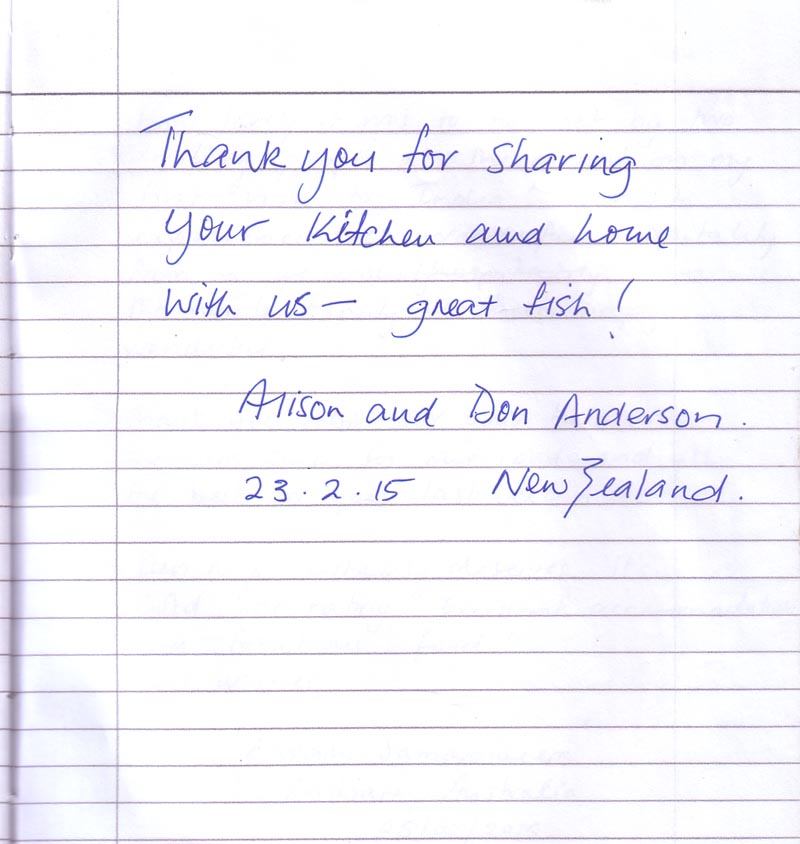 Thank you for sharing
your kitchen and home
with us — great fish!
Alison and Don Anderson.
23.2.15 New Zealand.